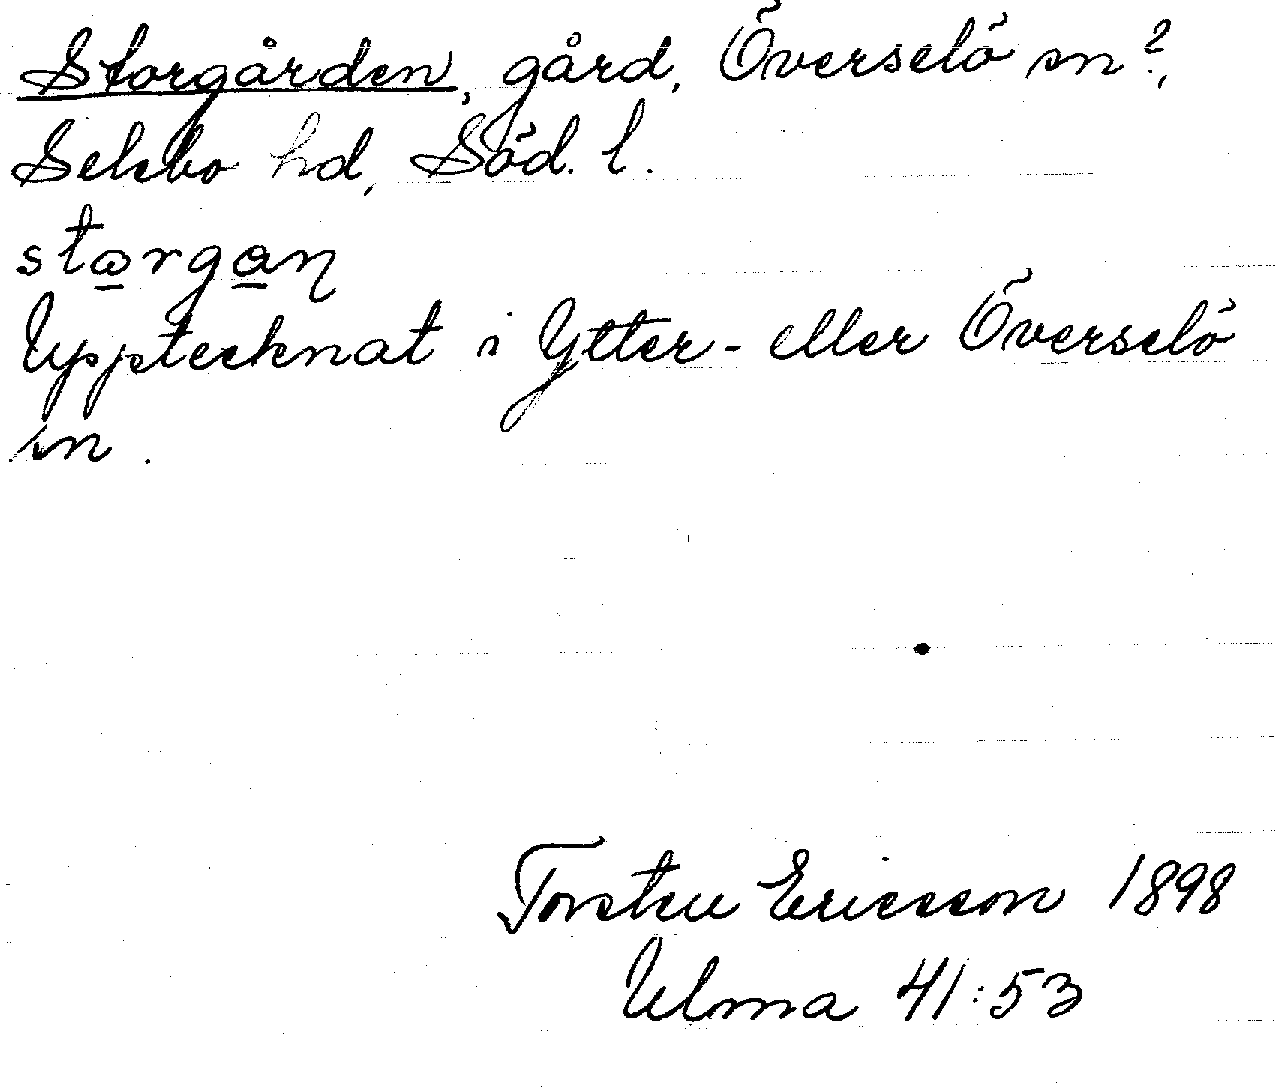 Storgården, gård, Överselö sn?,
Selebo hd, Söd. l.
storgan
Upptecknat i Ytter- eller Överselö
sn.
Torsten Ericsson 1898
Ulma 41:53